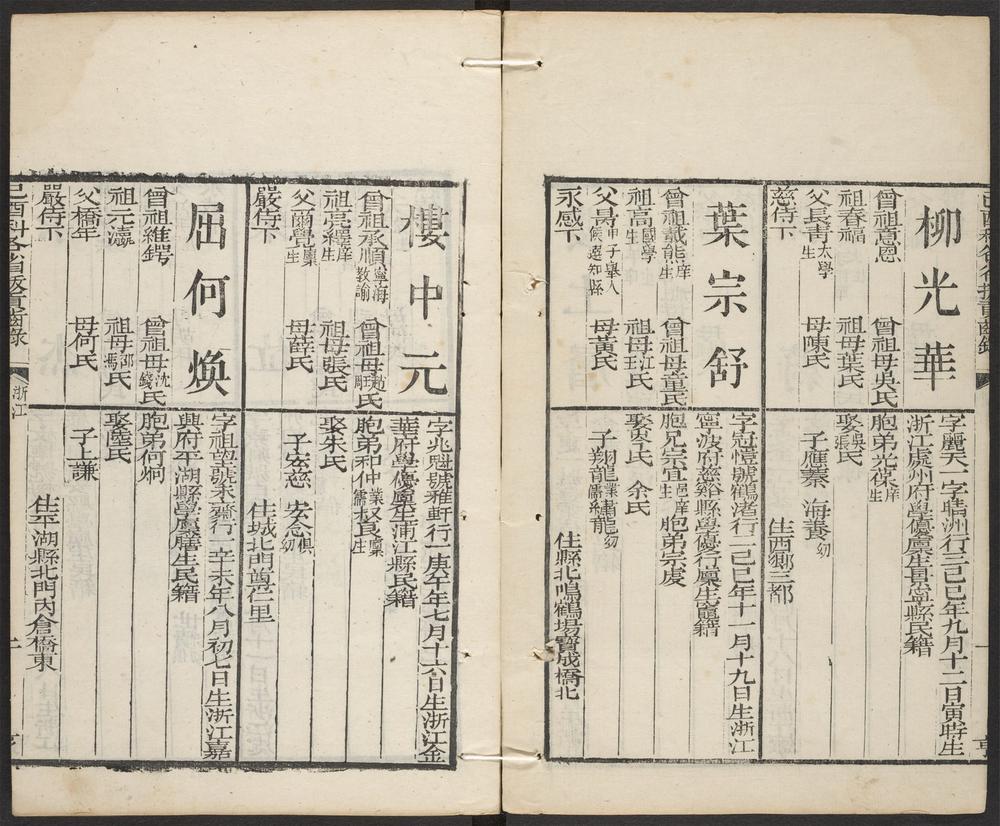 己酉科各省拔貢齒錄
柳光華
字麗天一字晴洲行三己巳年九月十二日寅時生
浙江處州府學優廩生縣民籍
曾祖意恩 曾祖母吳氏 胞弟光保庠生
祖春福 祖母葉氏 娶吳氏張氏
父長青太學生 母陳氏 子應蓁 海養幼
慈侍下 住西鄉三都
葉宗舒
字冠愷號鶴渚行二己巳年十一月十九日生浙江
寧波府慈谿縣學優行廩生竈籍
曾祖載熊庠生 曾祖母董氏 胞兄宗宜邑庠生 胞弟宗虔
祖高國學生 祖母江氏王氏 娶 氏 余氏
父昺甲子舉人候選知縣 母黃氏 子翔龍業儒 龍幼
永感下 住縣北鳴鶴場寶成橋北
樓中元
字兆魁號雅軒行一庚午年七月十六日生浙江金
華府學優廩生浦江縣民籍
曾祖承順寧海教諭 曾祖母趙氏 氏 胞弟和仲業儒 叔良廩生
祖亮繹庠生 祖母張氏 娶朱氏
父爾覺廩生 母薛氏 子宏慈 安念俱幼
嚴侍下 住城北門尊仁里
屈何煥
字祖望號未齋行一辛未年八月初七日生浙江嘉
興府平湖縣學廩膳生民籍
曾祖維鍔 曾祖母沈氏錢氏 胞弟何炯
祖元瀛 祖母邵氏馮氏 娶陸氏
父橋年 母何氏 子上謙
嚴侍下 住平湖縣北門內倉橋東
己酉科各省拔貢齒錄
浙江